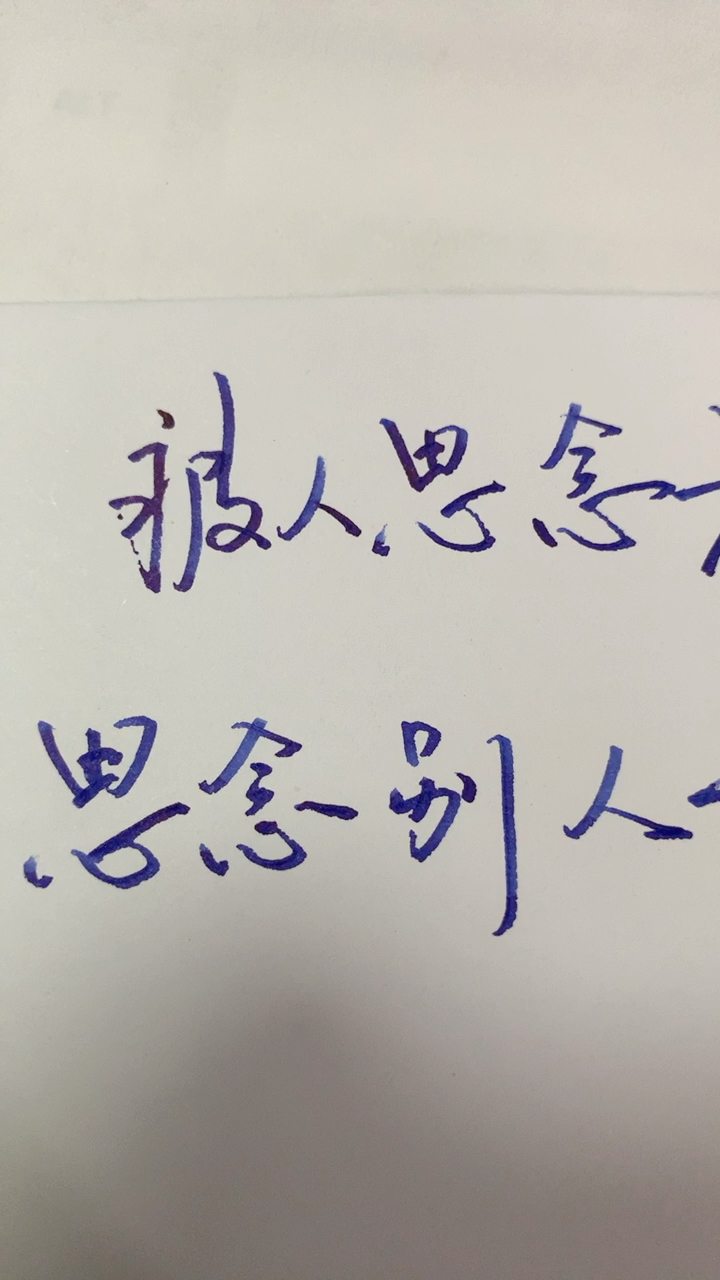 被人思念
思念别人